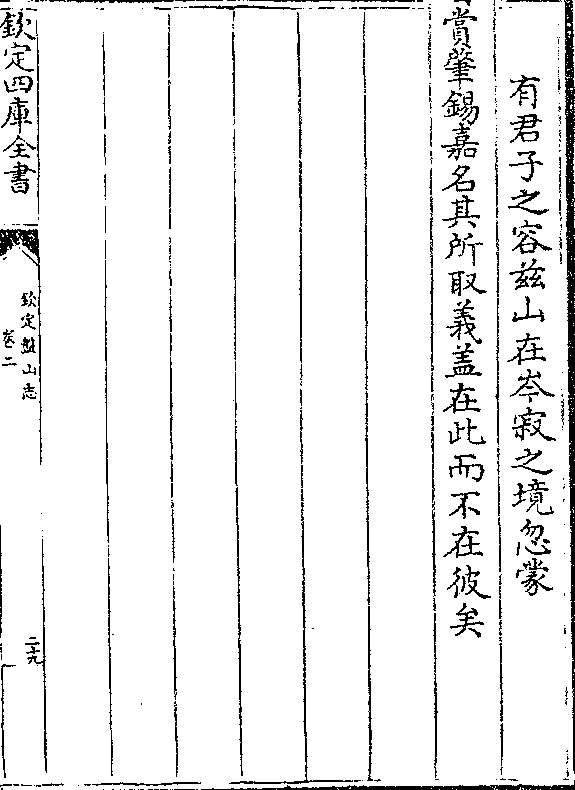 有君子之容兹山在岑寂之境忽蒙
賞肇錫嘉名其所取義盖在此而不在彼矣
欽定四庫全書
欽定盤山志
卷二
二十九